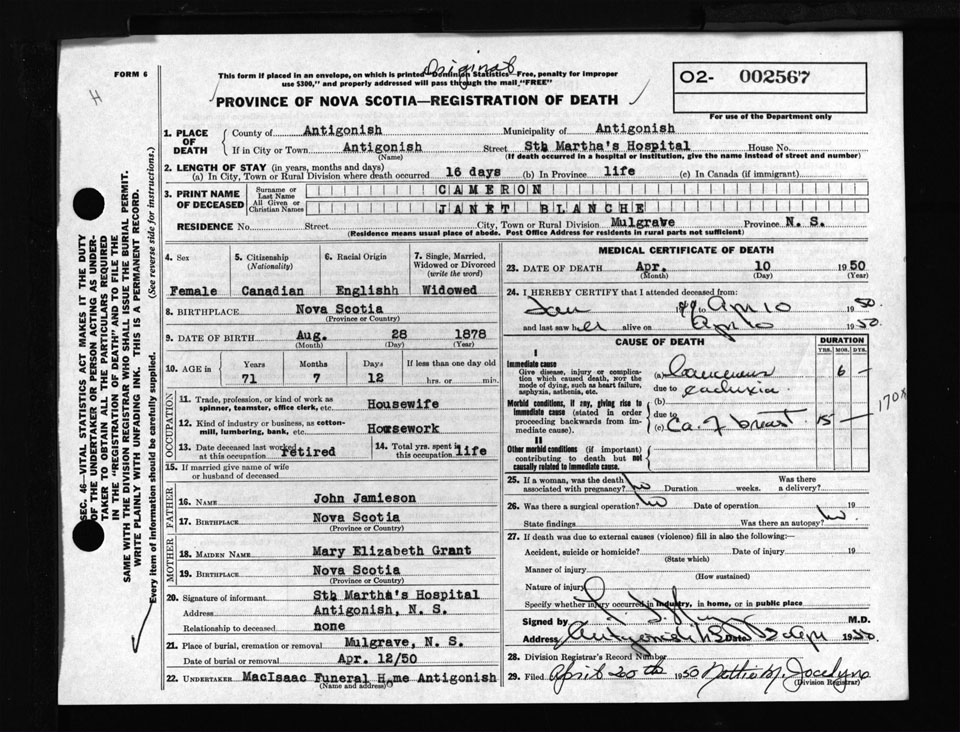 FORM 6
H
Original
This form if placed in an envelope, on which is printed "Dominion Statistics—Free, penalty for improper
use $300," and properly addressed will pass through the mail "FREE"
PROVINCE OF NOVA SCOTIA—REGISTRATION OF DEATH
O2- 002567
For use of the Department only
SEC. 46—VITAL STATISTICS ACT MAKES IT THE DUTY
OF THE UNDERTAKER OR PERSON ACTING AS UNDER-
TAKER TO OBTAIN ALL THE PARTICULARS REQUIRED
IN THE "REGISTRATION OF DEATH" AND TO FILE THE
SAME WITH THE DIVISION REGISTRAR WHO SHALL ISSUE THE BURIAL PERMIT.
WRITE PLAINLY WITH UNFADING INK. THIS IS A PERMANENT RECORD.
Every item of information should be carefully supplied. (See reverse side for instructions.)
1. PLACE OF DEATH
County of Antigonish Municipality of Antigonish
If in City or Town Antigonish Street Sth Martha's Hospital House No.
(Name) (If death occurred in a hospital or institution, give the name instead of street and number)
2. LENGTH OF STAY (in years, months and days)
(a) In City, Town or Rural Division where death occurred 16 days (b) In Province life (c) In Canada (if immigrant)
3. PRINT NAME OF DECEASED
Surname or Last Name CAMERON
All Given or Christian Names JANET BLANCHE
RESIDENCE No. Street City, Town or Rural Division Mulgrave Province N. S.
(Residence means usual place of abode. Post Office Address for residents in rural parts not sufficient)
4. Sex 5. Citizenship (Nationality) 6. Racial Origin 7. Single, Married, Widowed or Divorced (write the word)
Female Canadian Englishh Widowed
8. BIRTHPLACE Nova Scotia
(Province or Country)
9. DATE OF BIRTH Aug. 28 1878
(Month) (Day) (Year)
10. AGE in Years Months Days If less than one day old
71 7 12 hrs. or min.
OCCUPATION
11. Trade, profession, or kind of work as spinner, teamster, office clerk, etc. Housewife
12. Kind of industry or business, as cotton-mill, lumbering, bank, etc. Housework
13. Date deceased last worked at this occupation retired 14. Total yrs. spent in this occupation life
15. If married give name of wife or husband of deceased
FATHER
16. NAME John Jamieson
17. BIRTHPLACE Nova Scotia
(Province or Country)
MOTHER
18. MAIDEN NAME Mary Elizabeth Grant
19. BIRTHPLACE Nova Scotia
(Province or Country)
20. Signature of informant Sth Martha's Hospital
Address Antigonish, N. S.
Relationship to deceased none
21. Place of burial, cremation or removal Mulgrave, N. S.
Date of burial or removal Apr. 12/50
22. UNDERTAKER MacIsaac Funeral Home Antigonish
(Name and address)
MEDICAL CERTIFICATE OF DEATH
23. DATE OF DEATH Apr. 10 1950
(Month) (Day) (Year)
24. I HEREBY CERTIFY that I attended deceased from:
Jan 19 to Apr 10 1950.
and last saw her alive on Apr 10 1950.
CAUSE OF DEATH DURATION
YRS. MOS. DYS.
I
Immediate cause
Give disease, injury or complication which caused death, NOT the mode of dying, such as heart failure, asphyxia, asthenia, etc.
(a) Cancerous 6 —
due to cachexia
Morbid conditions, if any, giving rise to immediate cause (stated in order proceeding backwards from immediate cause).
(b)
due to
(c) Ca. of breast 15 — 170x
II
Other morbid conditions (if important) contributing to death but not causally related to immediate cause.
25. If a woman, was the death associated with pregnancy? no Duration weeks. Was there a delivery?
26. Was there a surgical operation? no Date of operation 19
State findings Was there an autopsy? no
27. If death was due to external causes (violence) fill in also the following:—
Accident, suicide or homicide? Date of injury 19
(State which)
Manner of injury
(How sustained)
Nature of injury
Specify whether injury occurred in industry, in home, or in public place
Signed by M.D.
Address Antigonish Date Apr 1950.
28. Division Registrar's Record Number
29. Filed April 20th 1950 Nettie M. Jocelyne
(Division Registrar)